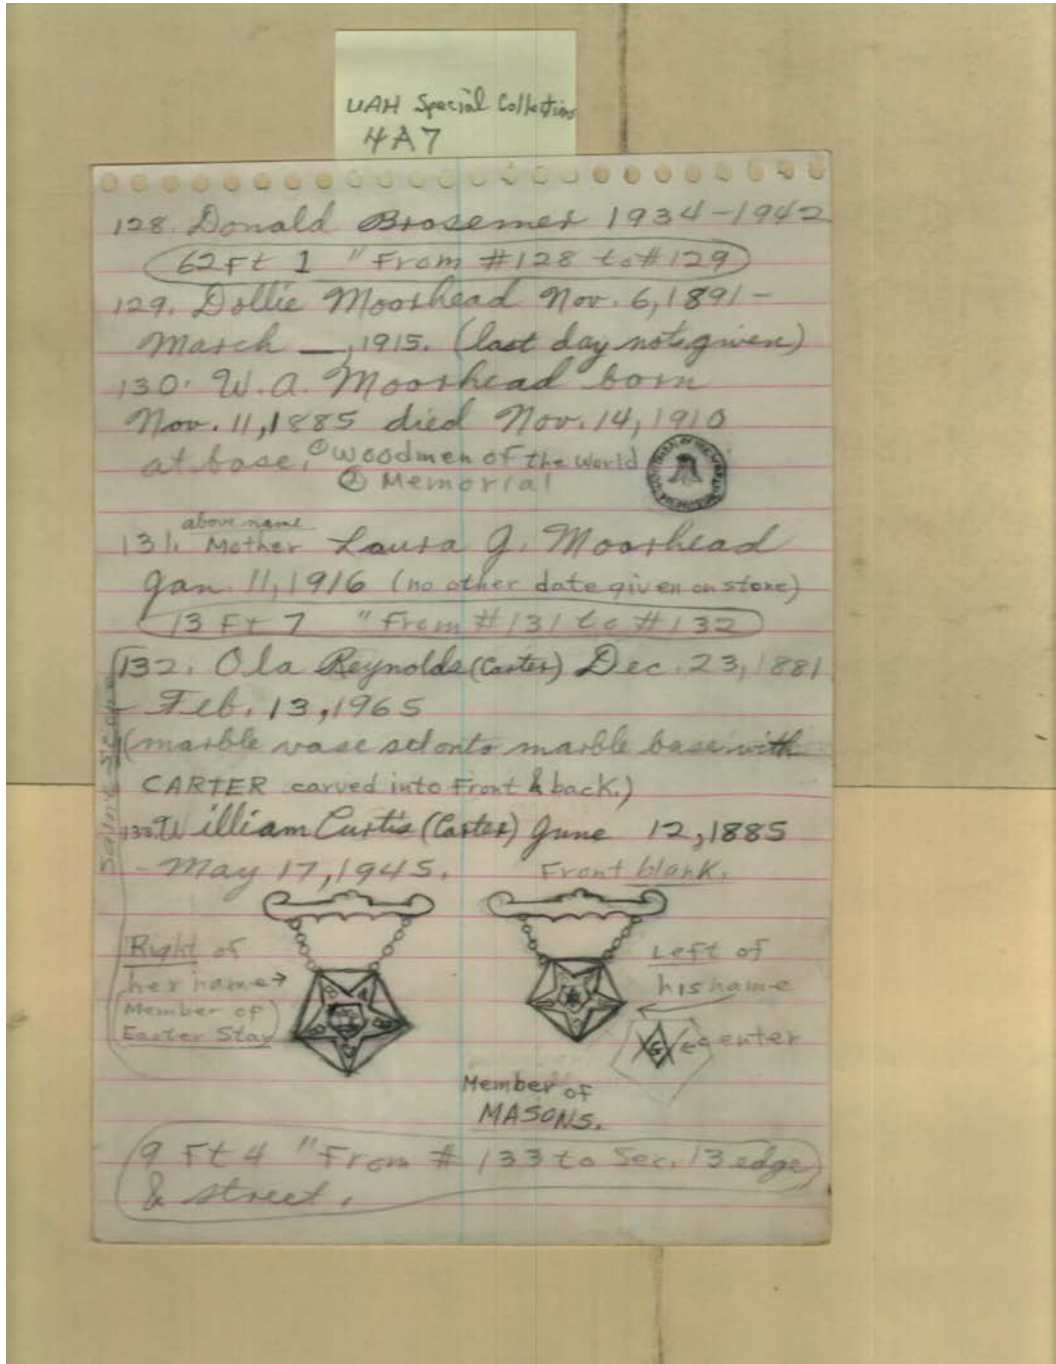 UAH Special Collections
4A7
128. Donald Brosemer 1934-1942
62 Ft 1 " From #128 to #129
129. Dollie Moorhead Nov. 6, 1891 -
March __, 1915. (last day not given)
130. W. A. Moorhead born
Nov. 11, 1885 died Nov. 14, 1910
at base, ① Woodmen of the World
② Memorial
above name
131. Mother Laura J. Moorhead
Jan. 11, 1916 (no other date given on stone)
13 Ft 7 " From #131 to #132
132. Ola Reynolds (Carter) Dec. 23, 1881
- Feb. 13, 1965
(marble vase set onto marble base with
CARTER carved into Front & back.)
133. William Curtis (Carter) June 12, 1885
- May 17, 1945. Front blank.
Same stone
Right of
her name →
Member of
Easter Star
Left of
his name
G
← center
Member of
MASONS.
9 Ft 4 " From # 133 to Sec. 13 edge
& street.